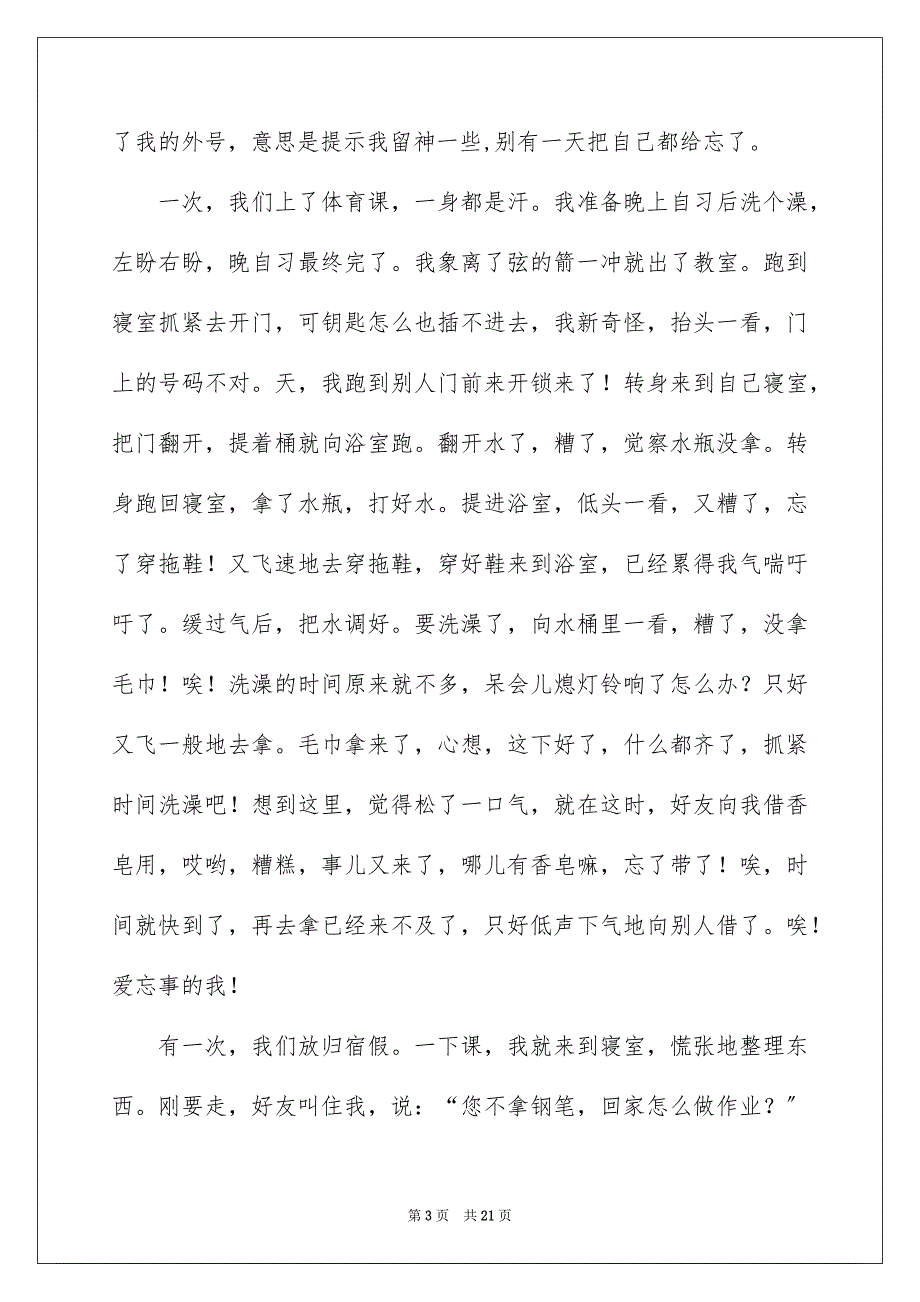 了我的外号，意思是提示我留神一些,别有一天把自己都给忘了。
一次，我们上了体育课，一身都是汗。我准备晚上自习后洗个澡，
左盼右盼，晚自习最终完了。我象离了弦的箭一冲就出了教室。跑到
寝室抓紧去开门，可钥匙怎么也插不进去，我新奇怪，抬头一看，门
上的号码不对。天，我跑到别人门前来开锁来了！转身来到自己寝室，
把门翻开，提着桶就向浴室跑。翻开水了，糟了，觉察水瓶没拿。转
身跑回寝室，拿了水瓶，打好水。提进浴室，低头一看，又糟了，忘
了穿拖鞋！又飞速地去穿拖鞋，穿好鞋来到浴室，已经累得我气喘吁
吁了。缓过气后，把水调好。要洗澡了，向水桶里一看，糟了，没拿
毛巾！唉！洗澡的时间原来就不多，呆会儿熄灯铃响了怎么办？只好
又飞一般地去拿。毛巾拿来了，心想，这下好了，什么都齐了，抓紧
时间洗澡吧！想到这里，觉得松了一口气，就在这时，好友向我借香
皂用，哎哟，糟糕，事儿又来了，哪儿有香皂嘛，忘了带了！唉，时
间就快到了，再去拿已经来不及了，只好低声下气地向别人借了。唉！
爱忘事的我！
有一次，我们放归宿假。一下课，我就来到寝室，慌张地整理东
西。刚要走，好友叫住我，说：“您不拿钢笔，回家怎么做作业？〞
第 3 页 共 21 页